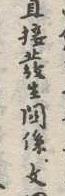 直接發生關係。文